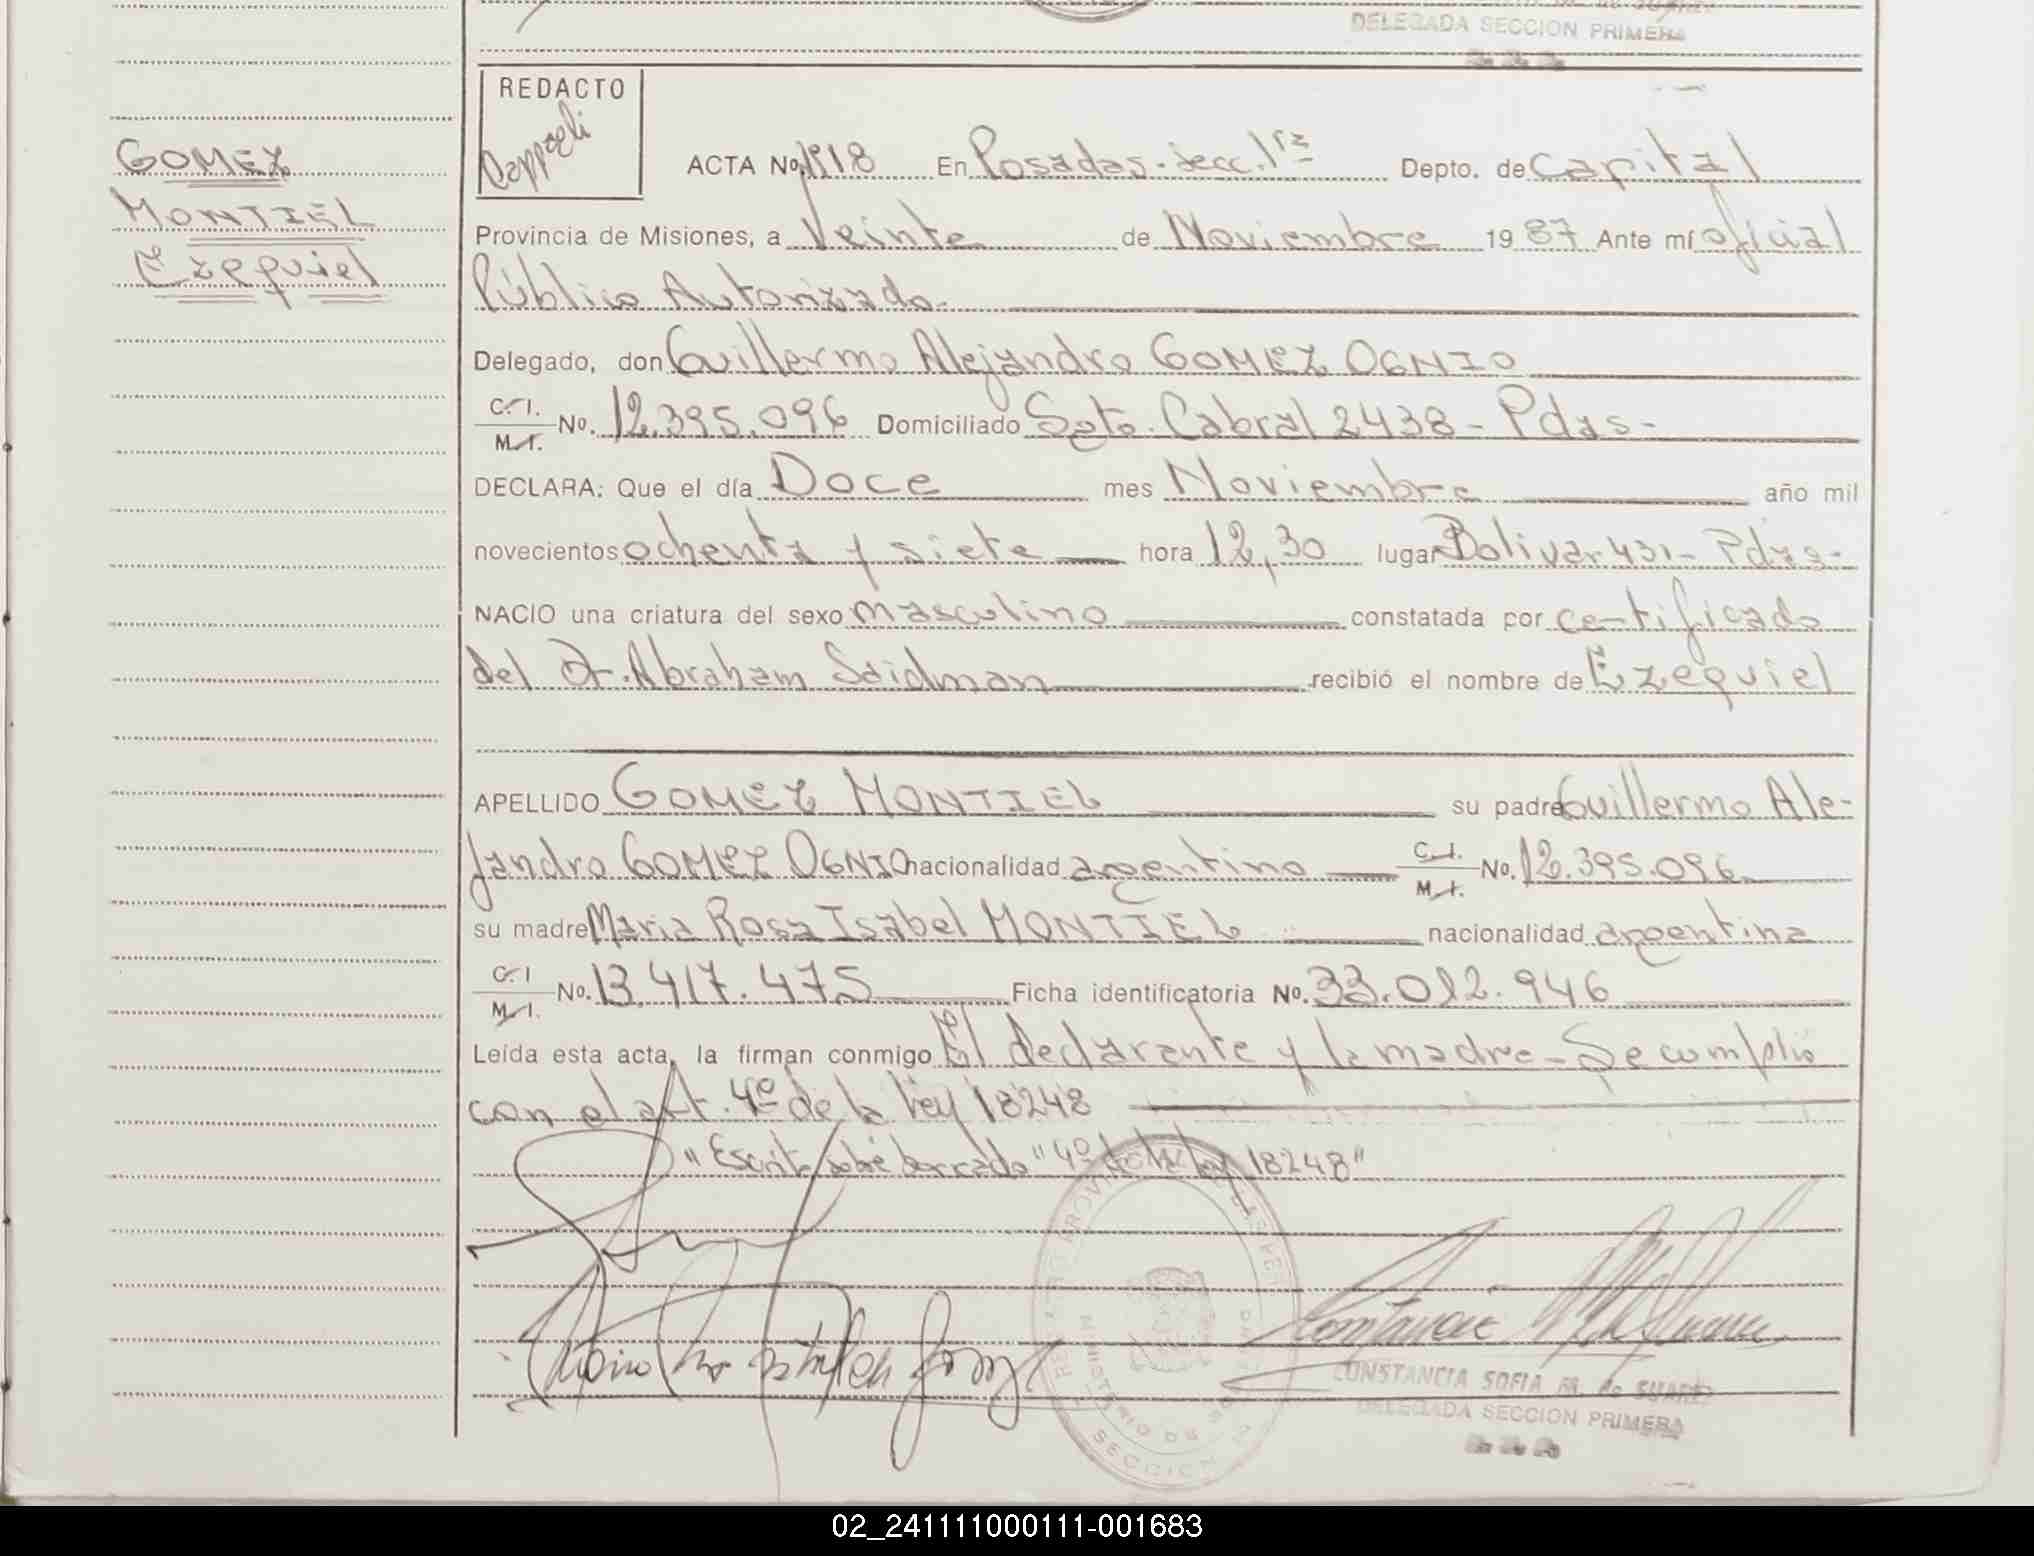 DELEGADA SECCION PRIMERA
REDACTO
GOMEZ
MONTIEL
Ezequiel
ACTA No. 1918 En Posadas. secc. 1ra Depto. de Capital
Provincia de Misiones, a Veinte de Noviembre 1987 Ante mí oficial
Público Autorizado.
Delegado, don Guillermo Alejandro GOMEZ OGNIO
C.I. M.I. No. 12.395.096 Domiciliado Sgto. Cabral 2438 - Pdas -
DECLARA: Que el día Doce mes Noviembre año mil
novecientos ochenta y siete hora 12,30 lugar Bolivar 431 - Pdas -
NACIO una criatura del sexo masculino constatada por certificado
del Dr. Abraham Saidman recibió el nombre de Ezequiel
APELLIDO GOMEZ MONTIEL su padre Guillermo Ale-
jandro GOMEZ OGNIO nacionalidad argentino C.I. M.I. No. 12.395.096
su madre Maria Rosa Isabel MONTIEL nacionalidad argentina
C.I M.I. No. 13.417.475 Ficha identificatoria No. 33.012.946
Leída esta acta, la firman conmigo El declarante y la madre - Se cumplió
con el art. 4º de la ley 18248
"Escrito sobre borrado "4º de la ley 18248"
CONSTANCIA SOFIA de SUAREZ
DELEGADA SECCION PRIMERA
02_241111000111-001683